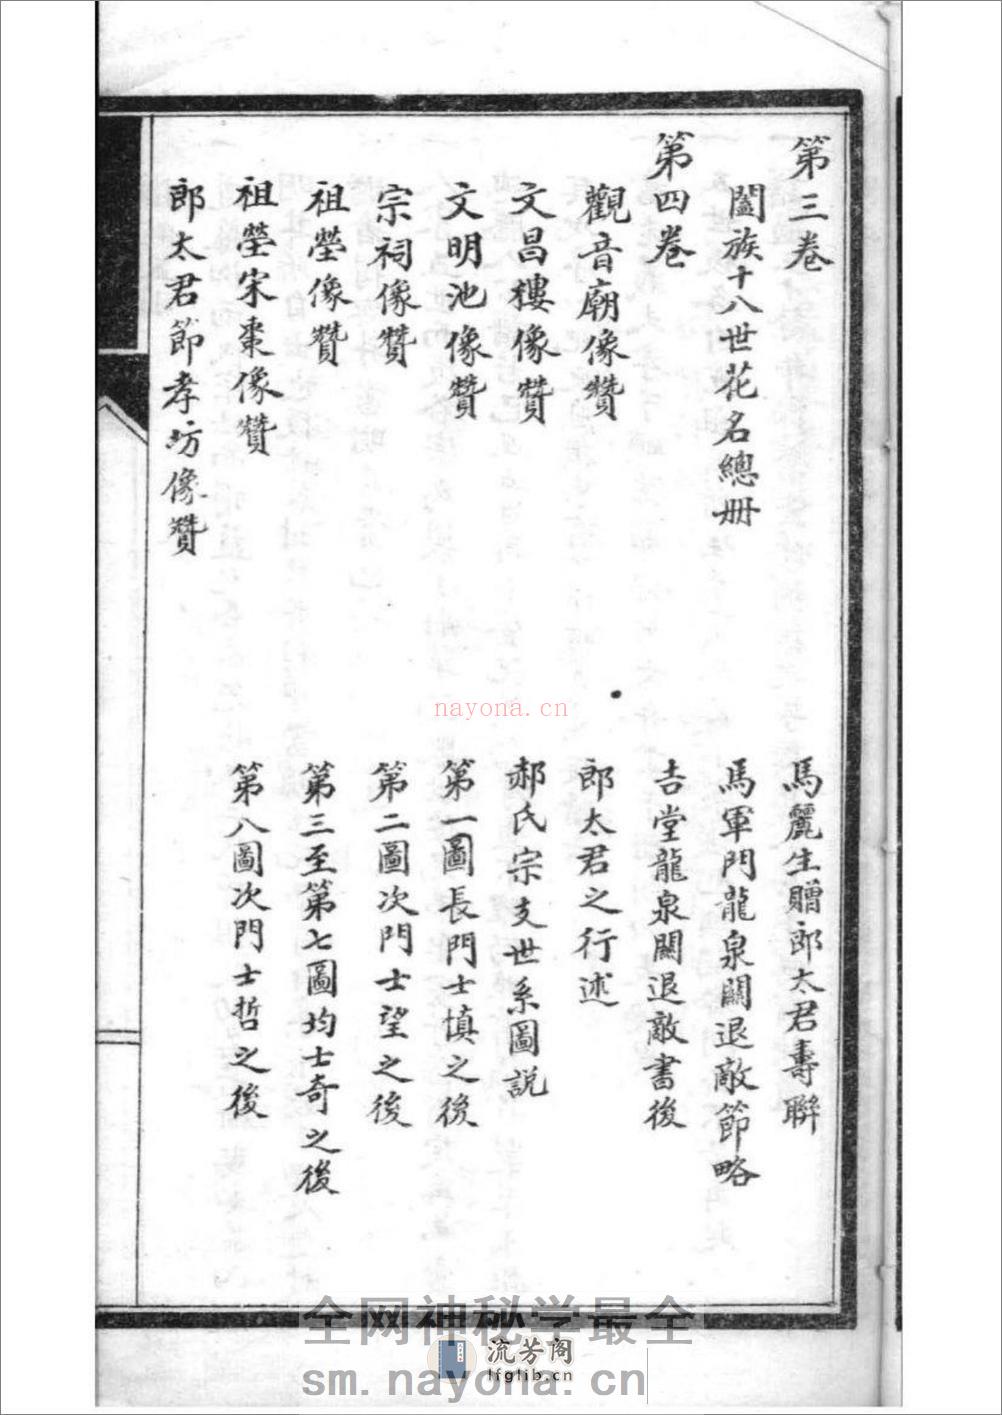 第三卷
闔族十八世花名總册
第四卷
觀音廟像贊
文昌樓像贊
文明池像贊
宗祠像贊
祖塋像贊
祖塋宋棗像贊
郎太君節孝坊像贊
馬麗生贈郎太君壽聯
馬軍門龍泉關退敵節略
吉堂龍泉關退敵書後
郎太君之行述
郝氏宗支世系圖説
第一圖長門士慎之後
第二圖次門士望之後
第三至第七圖均士奇之後
第八圖次門士哲之後
nayona.cn
全网神秘学最全
流芳阁
lfglib.cn
sm.nayona.cn